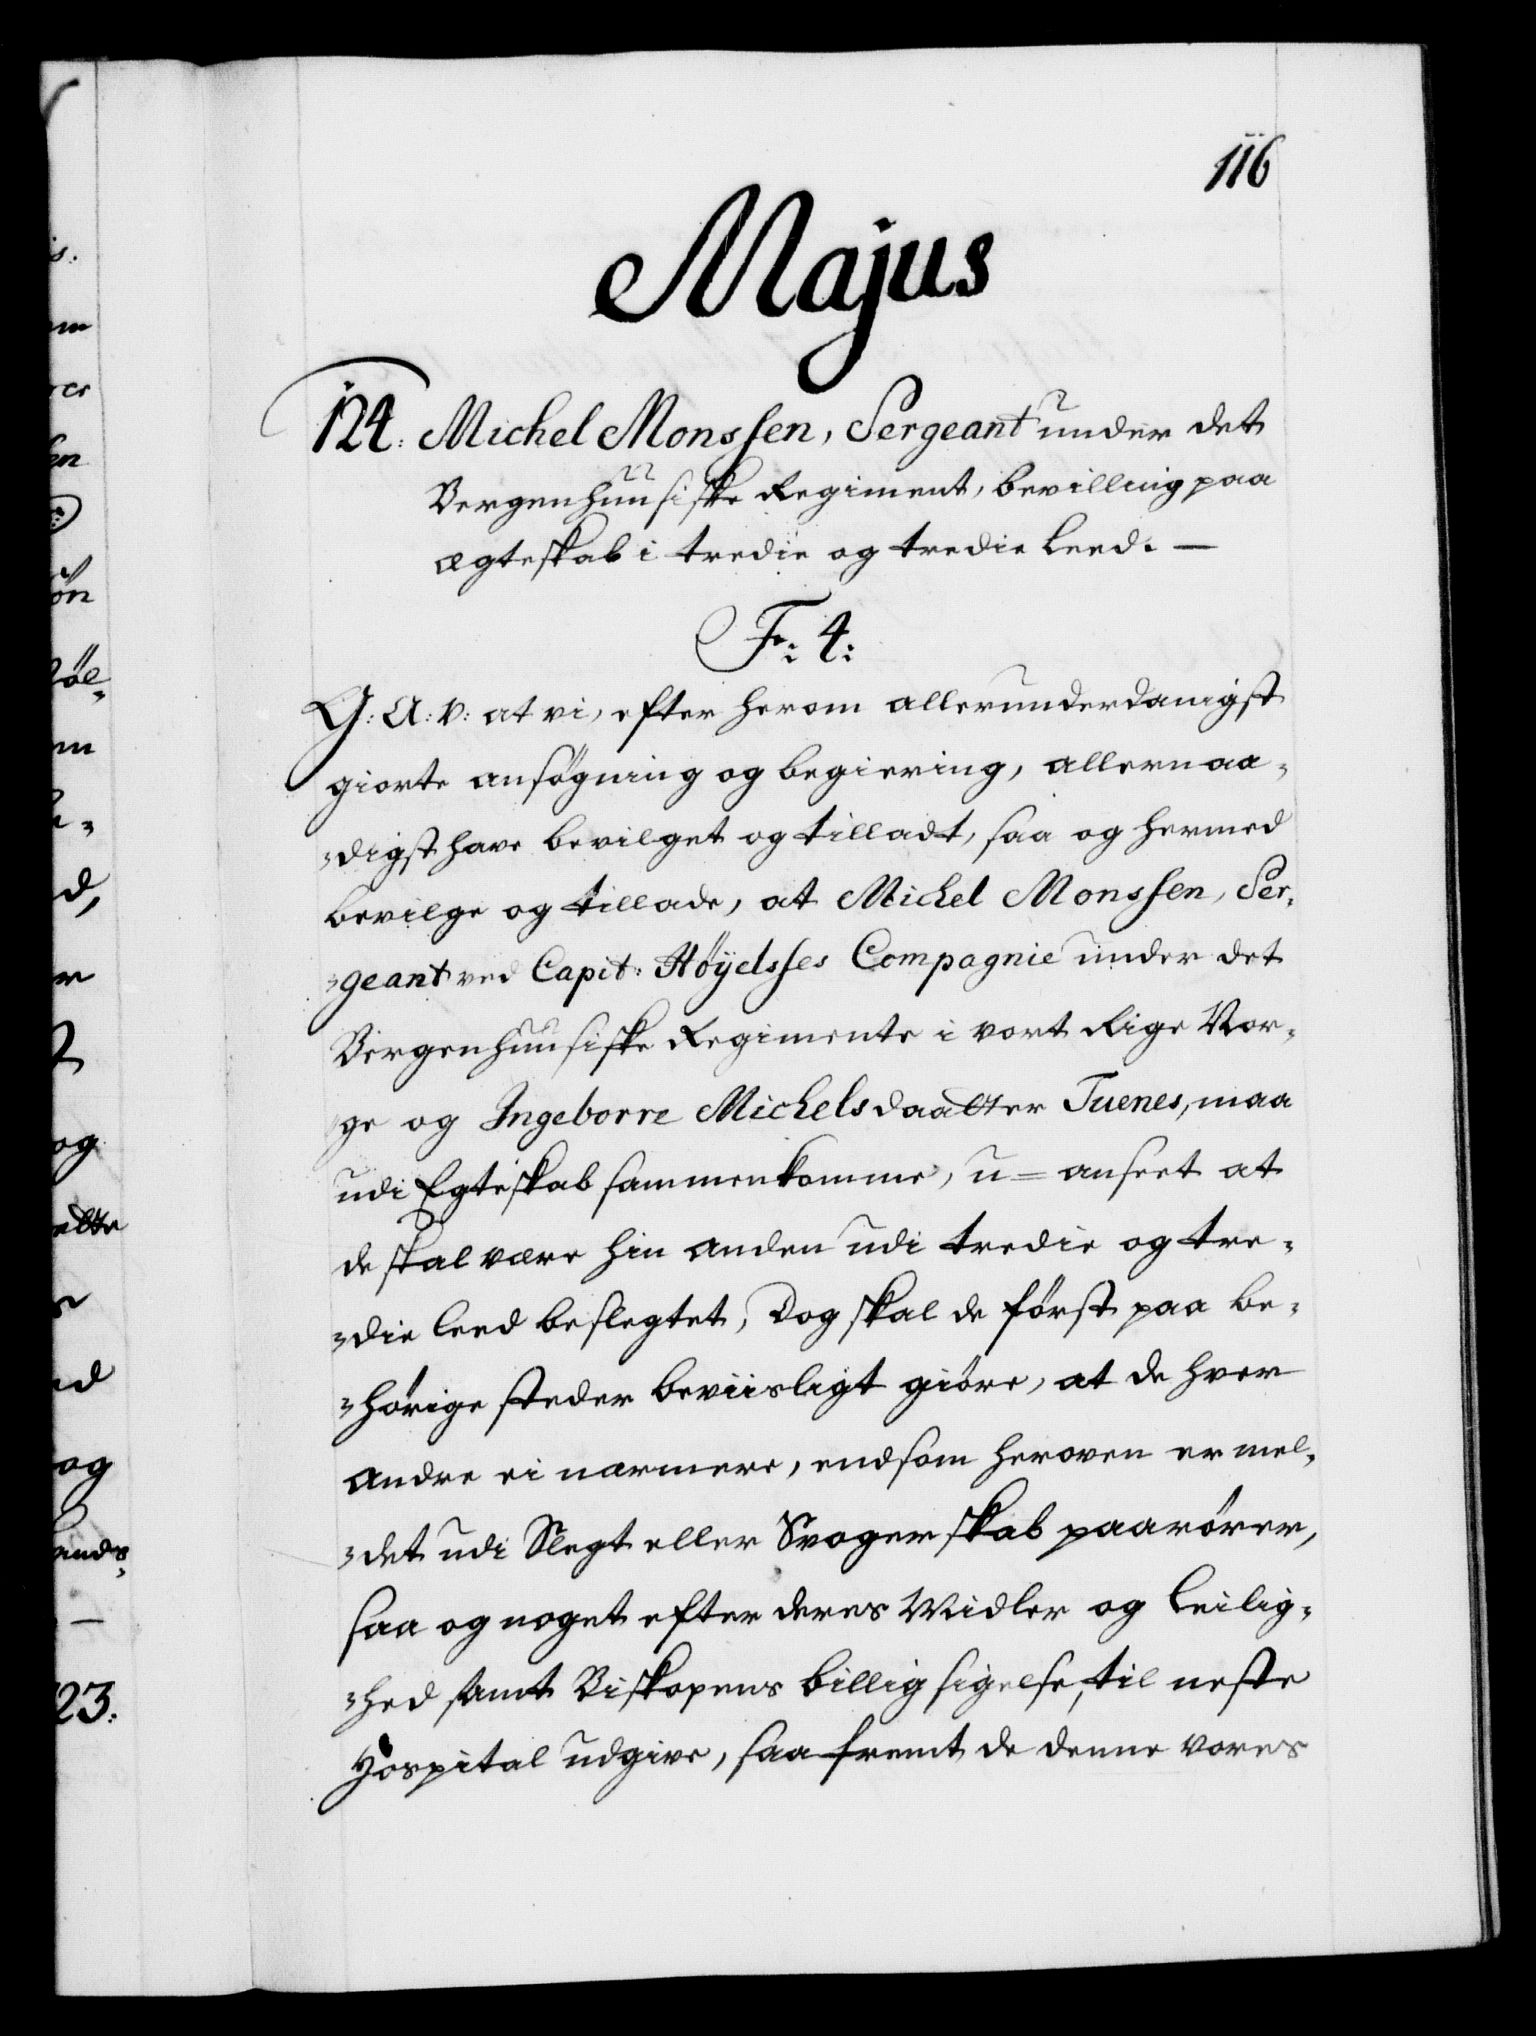 116
Majus
124. Michel Monssen, Sergeant under det
Bergenhuusiske Regiment, bevilling paa
ægteskab i tredie og tredie Leed. —
Fr: 4:
G: A: V: at vi, efter herom allerunderdanigst
giorte ansøgning og begiering, allernaa-
-digst have bevilget og tilladt, saa og hermed
bevilge og tillade, at Michel Monssen, Ser-
-geant ved Capit: Höÿelsses Compagnie under det
Bergenhuusiske Regimente i vort Rige Nor-
-ge og Ingeborre Michelsdaatter Tuenes, maa
udi Egteskab sammenkomme, u=anseet at
de skal være hin anden udi tredie og tre-
-die leed beslegtet, Dog skal de först paa be-
-hörige steder beviisligt giöre, at de hver
andre ei nærmere, end som heroven er mel-
-det udi Slegt eller Svogerskab paarörer,
saa og noget efter deres Midler og Leilig-
-hed samt Biskopens billigsigelse, til neste
Hospital udgive, saafremt de denne vores